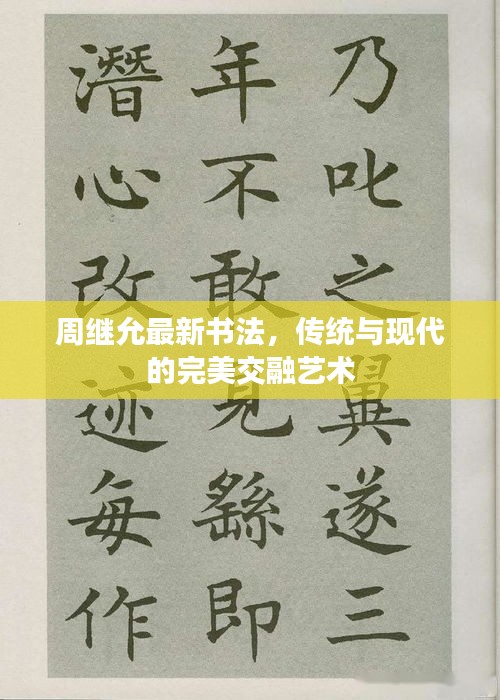 乃叱之翼遂三
年不敢見繇即
潛心改迹每作
周继允最新书法，传统与现代
的完美交融艺术